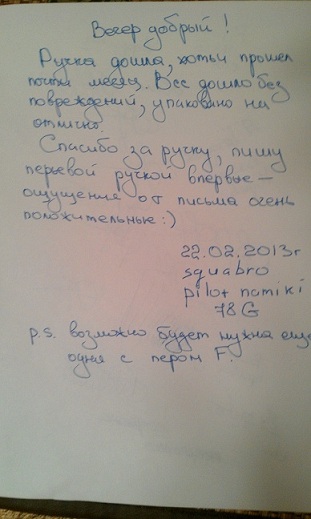 Вечер добрый!
Ручка дошла, хотьи прошел
почти месяц. Всё дошло без
повреждений, упаковано на
отлично.
Спасибо за ручку, пишу
перьевой ручкой впервые —
ощущения от письма очень
положительные :)
22.02.2013г
squabro
pilot namiki
78G
p.s. возможно будет нужна ещё
одна с пером F.